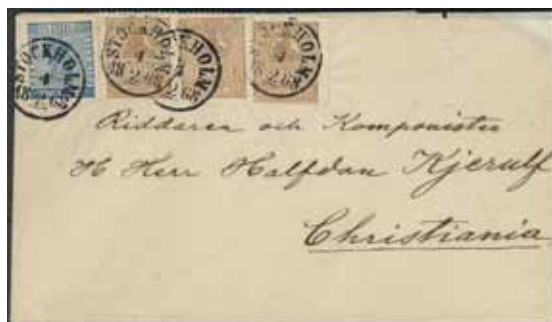 STOCKHOLM
STOCKHOLM
STOCKHOLM
STOCKHOLM
Riddaren och Komponisten
H Herr Halfdan Kjerulf
Christiania